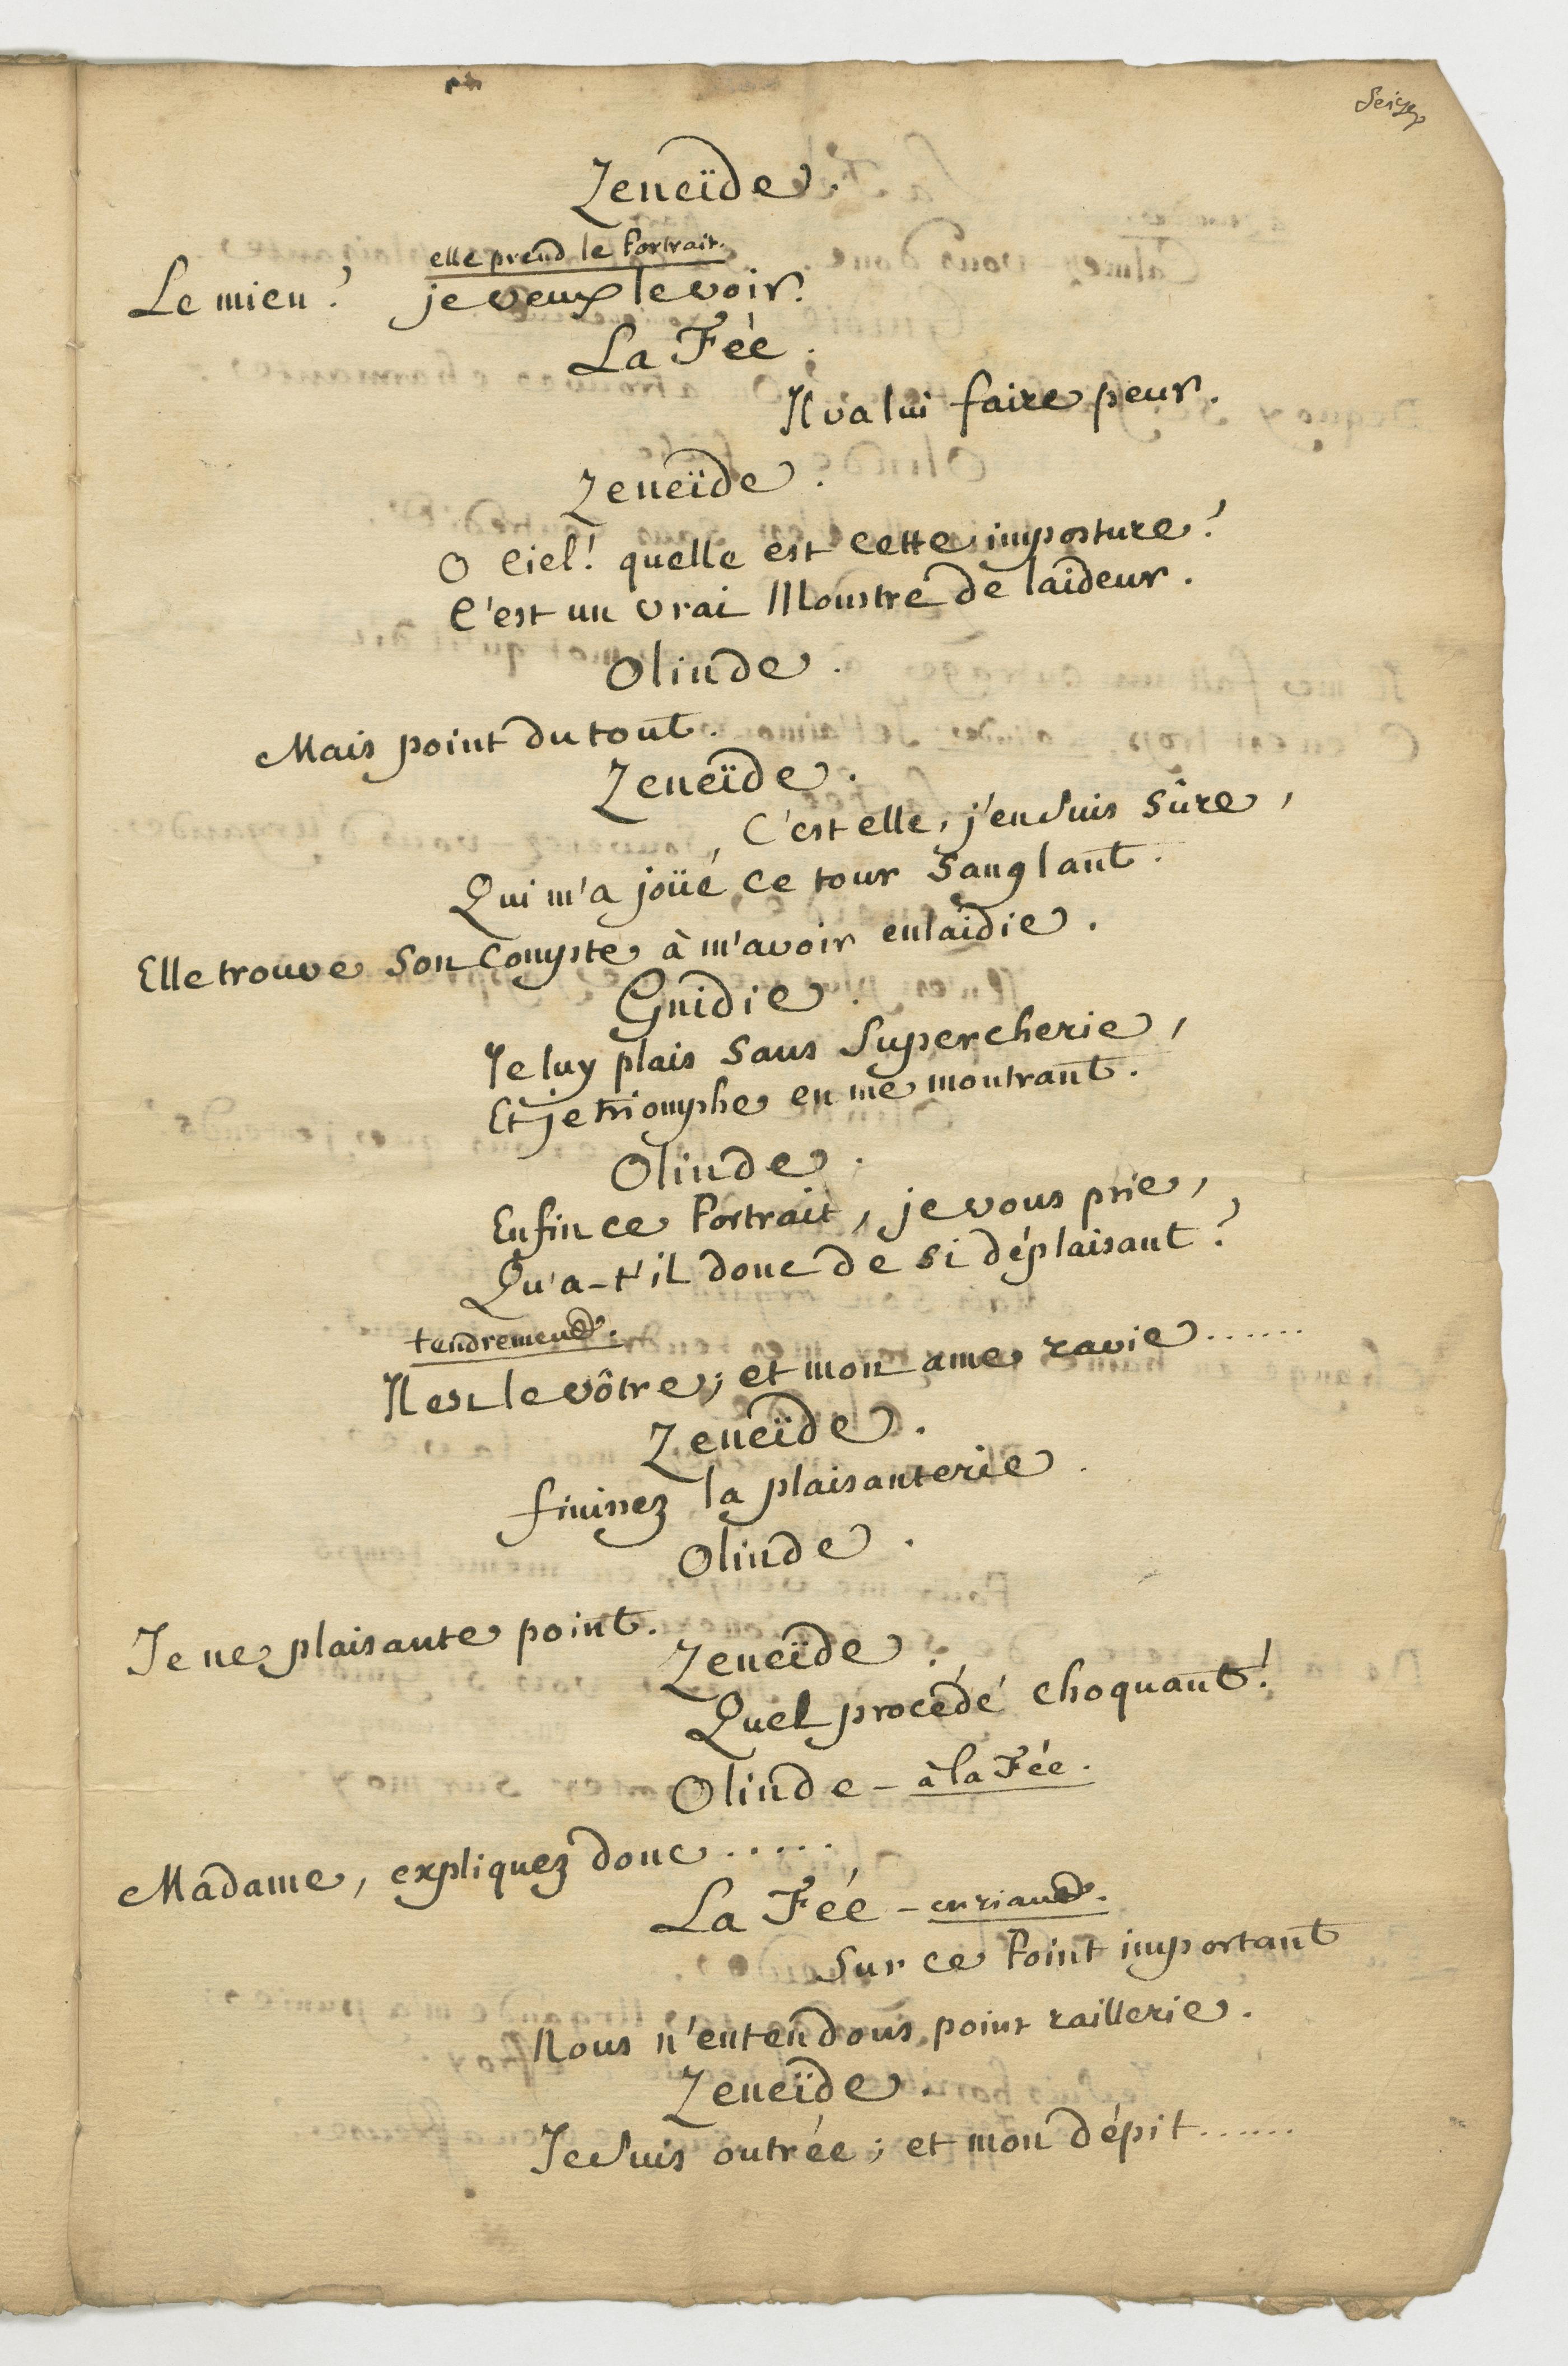 Seize
Zeneïde.
elle prend le Portrait.
Le mien? je veux le voir.
La Fée.
Il va lui faire peur.
Zeneïde.
O Ciel! quelle est cette imposture?
C'est un vrai Monstre de laideur.
Olinde.
Mais point du tout.
Zeneïde.
C'est elle, j'en suis sûre,
Qui m'a joüé ce tour sanglant.
Elle trouve son Compte à m'avoir enlaidie.
Gnidie.
Je luy plais sans supercherie,
Et je triomphe en me montrant.
Olinde.
Enfin ce Portrait, je vous prie,
Qu'a-t'il donc de si déplaisant?
tendrement.
Il est le vôtre; et mon ame ravie......
Zeneïde.
finissez la plaisanterie.
Olinde.
Je ne plaisante point.
Zeneïde.
Quel procédé choquant!
Olinde - à la Fée.
Madame, expliquez donc.....
La Fée - en riant.
Sur ce Point important
Nous n'entendons point raillerie.
Zeneïde.
Je suis outrée; et mon dépit......